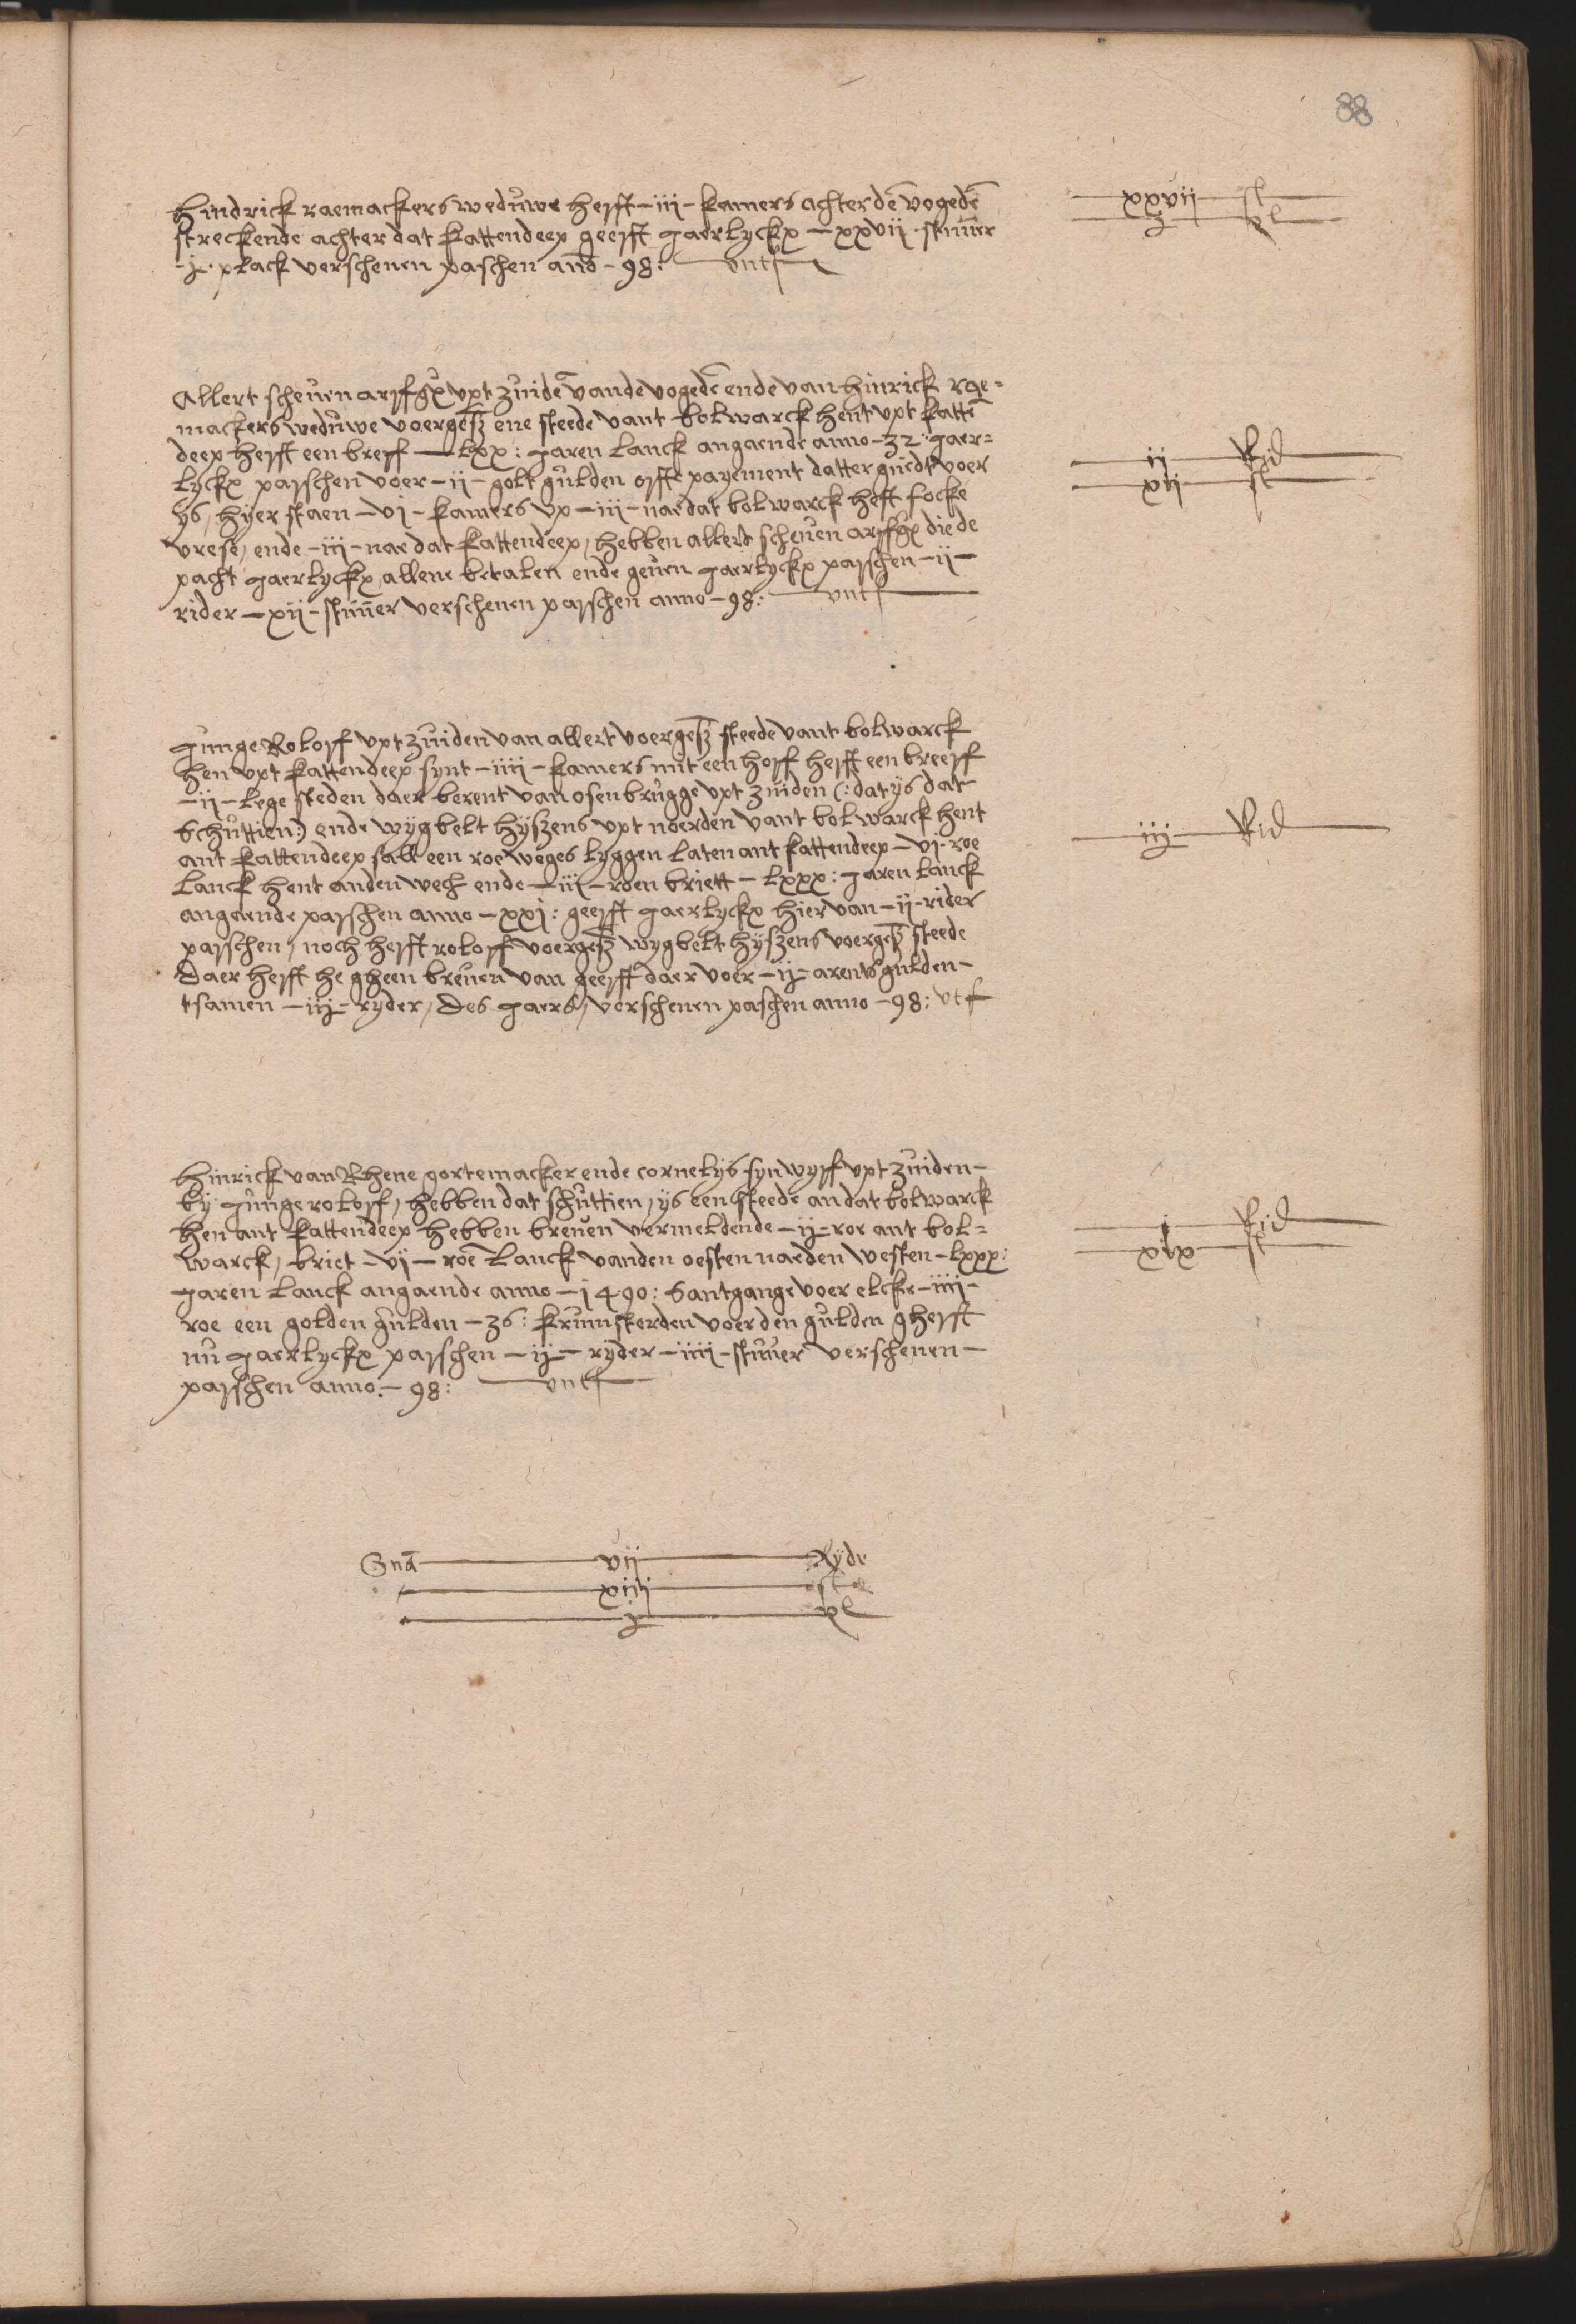 88
hindrick raemackers weduwe heyfft – iij – kamers achter dē vogedē
streckende achter dat kattendeep geefft jaerlyckx – xxvij stuver
– j plack verschenen paschen anō – 98: untf
xxvij st
j pl
Allert scheuen arffgn upt zuidē vande vogedē ende van hinrick rae=
mackers weduwe voergesz ene steede vant bolwarck hent upt kattē
deep heyfft een breyff – lxx: jaren lanck angaende anno – 32 jaer=
lyckx paisschen voer – ij – golt gulden offte payement datter guedt voer
ys, hyer staen – vj – kamers up – iij – nae dat bolwarck heft focke
vrese, ende – iij – nae dat kattendeep, hebben allert scheuen arffgn die de
pacht jaerlyckx allene betalen ende geuen jaerlyckx paisschen – ij –
rider – xij – stuuer verschenen paisschen anno – 98: untf
ij Rid
xij st
junge Roloff upt zuiden van allert voergesz steede vant bolwarck
hen upt kattendeep synt – iiij – kamers mit een hoff heyfft een breeff
– ij – lege steden daer berent van osenbrugge upt zuiden (: dat ys dat
schuttien:) ende wygbelt hyszens upt noerden vant bolwarck hent
ant kattendeep sall een roe weges lyggen laten ant kattendeep – vj – roe
lanck hent anden wech ende – iij – roen briett – lxxx: jaren lanck
angaende paisschen anno – xxj: geefft jaerlyckx hier van – ij – rider
paisschen, noch heyfft roloff voergesz wygbelt hyszens voergesz steede
daer heyfft he gheen breuen van geefft daer voer – ij – arents gulden –
tsamen – iij – ryder, des jaers, verschenen paschen anno – 98: utf
iij Rid
Hinrick van Rhene gortemacker ende cornelys syn wyff upt zuiden –
by junge roloff, hebben dat schuttien, ys een steede an dat bolwarck
hen ant kattendeep hebben breuen vermeldende – ij – roe ant bol=
warck, briet – vj – roē lanck vanden oesten nae den westen – lxxx:
jaren lanck angaende anno – 1490: santgange voer elcke – iiij –
roe een golden gulden – 36: krumsterden voer den gulden gheyfft
nu jaerlyckx paisschen – ij – ryder – iiij – stuuer verschenen –
paisschen anno – 98: untf
j Rid
xix st
vij Ryde
xiiij st
j pl